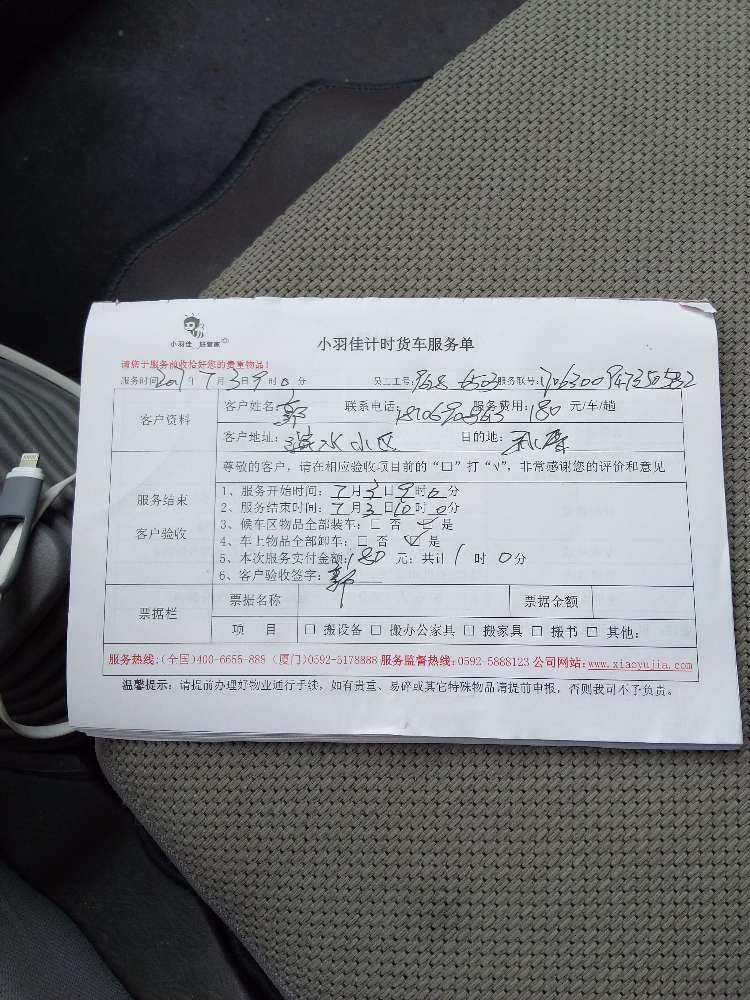 小羽佳 好管家
小羽佳计时货车服务单
请您于服务前收捡好您的贵重物品!
服务时间: 年7月3日9时0分 员工工号: 服务联号:
客户资料
客户姓名:郭 联系电话: 服务费用:180 元/车/趟
客户地址: 水小区 目的地:
尊敬的客户,请在相应验收项目前的“口”打“√”,非常感谢您的评价和意见
服务结束
客户验收
1、服务开始时间:7月3日9时0分
2、服务结束时间:7月3日10时0分
3、候车区物品全部装车:□ 否 ✓ 是
4、车上物品全部卸车:□ 否 ✓ 是
5、本次服务实付金额:180 元;共计1时0分
6、客户验收签字:郭
票据栏
票据名称 票据金额
项 目 □ 搬设备 □ 搬办公家具 □ 搬家具 □ 搬书 □ 其他:
服务热线:(全国)400-6655-888 (厦门)0592-5178888 服务监督热线:0592-5888123 公司网站:www.xiaoyujia.com
温馨提示:请提前办理好物业通行手续,如有贵重、易碎或其它特殊物品请提前申报,否则我司不予负责。